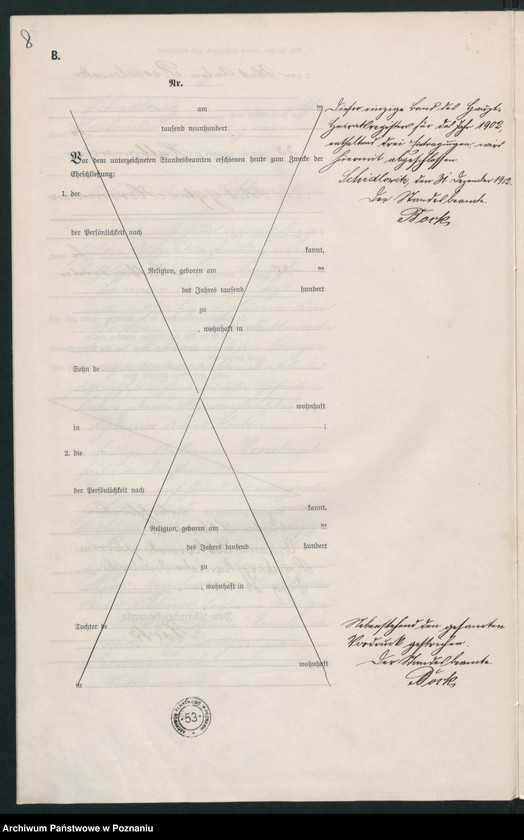 8
B.
Nr.
am ten
tausend neunhundert
Vor dem unterzeichneten Standesbeamten erschienen heute zum Zwecke der
Eheschließung:
1. der
der Persönlichkeit nach
kannt,
Religion, geboren am ten
des Jahres tausend hundert
zu
, wohnhaft in
Sohn de
wohnhaft
in ;
2. die
der Persönlichkeit nach
kannt,
Religion, geboren am ten
des Jahres tausend hundert
zu
, wohnhaft in
Tochter de
wohnhaft
in
Dieser einzige Band des Haupt-
Heiratsregisters für das Jahr 1902,
enthaltend drei Eintragungen, wird
hiermit abgeschlossen.
Schidlowitz, den 31. Dezember 1902.
Der Standesbeamte.
Bock
Nebenstehend den gesamten
Vordruck gestrichen.
Der Standesbeamte.
Bock
53
Archiwum Państwowe w Poznaniu